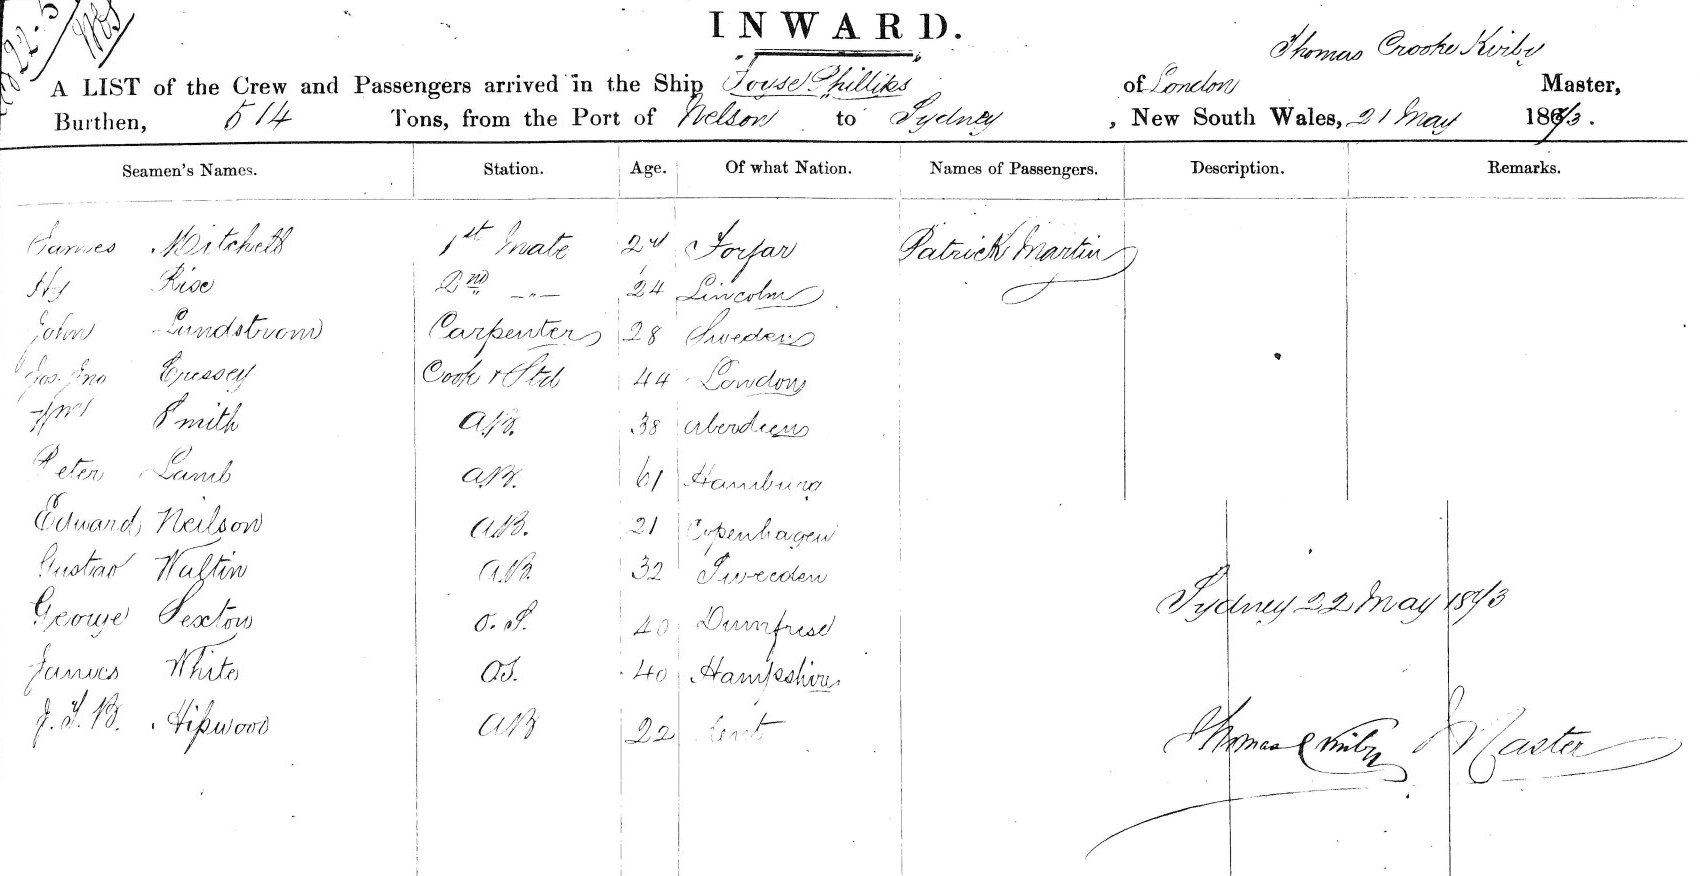 22-5
INWARD.
Thomas Crooke Kirby
A LIST of the Crew and Passengers arrived in the Ship Joyse Phillips of London Master,
Burthen, 514 Tons, from the Port of Nelson to Sydney, New South Wales, 21 May 1873.
Seamen's Names. Station. Age. Of what Nation. Names of Passengers. Description. Remarks.
James Mitchell 1st Mate Forfar Patrick Martin
Hy Rise 2nd -"- 24 Lincoln
John Lundstrom Carpenter 28 Sweden
Jos. Jno Cressey Cook & Std 44 London
Wm Smith A.B. 38 Aberdeen
Peter Lamb A.B. 61 Hamburg
Edward Neilson A.B. 21 Copenhagen
Gustav Waltin A.B. 32 Sweeden
George Sexton O.S. 40 Dumfrise
Sydney 22 May 1873
James White OS. 40 Hampshire
J. T. B. Hipwood AB 22 Kent
Thomas C Kirby Master